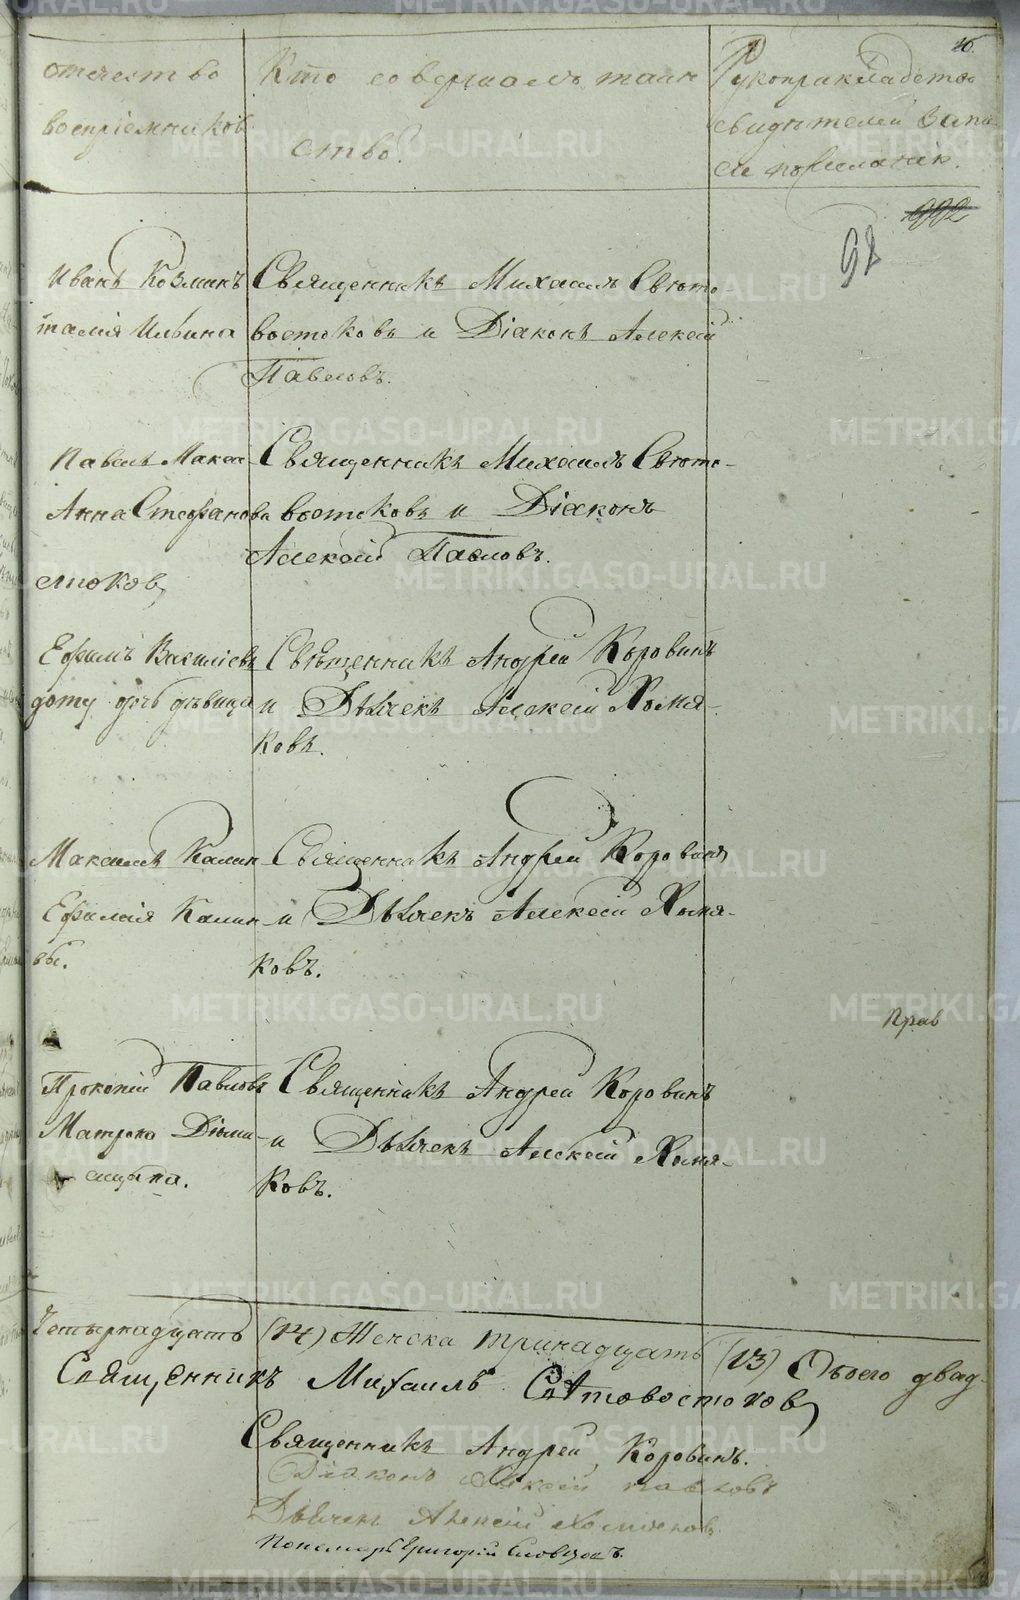 46.
отечество
воспріемниковъ
Кто совершалъ таин
ство.
Рукоприкладство
свидѣтелей записи
по желанію.
992
98
Иванъ Козминъ
талія Ильина
Священникъ Михаилъ Свято
востоковъ и Діаконъ Алексій
Павловъ.
Павелъ
Анна Стефанова
Священникъ Михаилъ Свято-
востоковъ и Діаконъ
Алексій Павловъ.
Ефимъ Василіевъ
дочь дѣвица
Священникъ Андрей Коровинъ
и Дьячекъ Алексій Хомя-
ковъ.
Максимъ Калин
Калин
вы.
Священникъ Андрей Коровинъ
и Дьячекъ Алексій Хомя-
ковъ.
Прав
Прокопій Павловъ
Матрона
Священникъ Андрей Коровинъ
и Дьячекъ Алексій Хомя-
ковъ.
Четырнадцать (14) Женска тринадцать (13) Обоего двад-
Священникъ Михаилъ Святовостоковъ
Священникъ Андрей Коровинъ.
Діаконъ Алексій Павловъ
Дьячекъ Алексій Хомяковъ
Пономарь Григорій Словцовъ.
METRIKI.GASO-URAL.RU